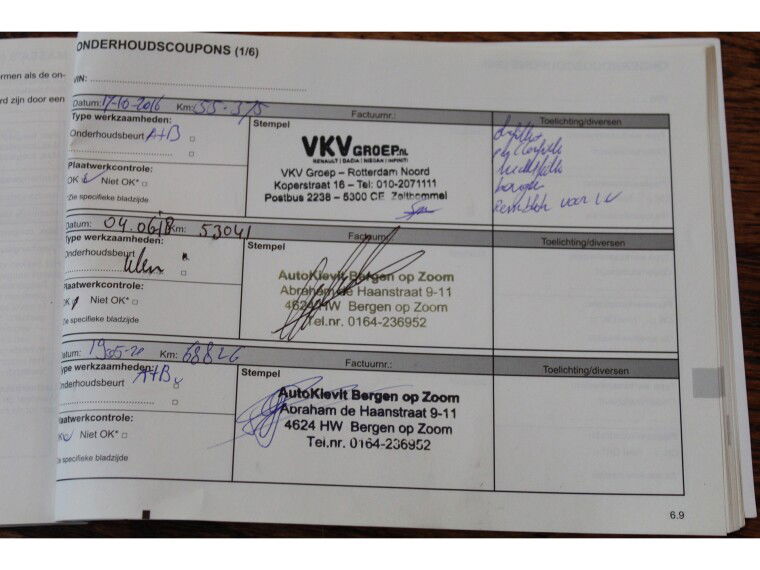 ONDERHOUDSCOUPONS (1/6)
rmen als de on-
rd zijn door een
VIN:
Datum: 17-10-2016 Km: 55-375 Factuurnr.: Toelichting/diversen
Type werkzaamheden:
Onderhoudsbeurt A+B
Stempel
VKV GROEP.NL
RENAULT | DACIA | NISSAN | INFINITI
VKV Groep – Rotterdam Noord
Koperstraat 16 – Tel: 010-2071111
Postbus 2238 – 5300 CE Zaltbommel
Plaatwerkcontrole:
OK Niet OK*
*Zie specifieke bladzijde
voor
Datum: 04.06.18 Km: 53041 Factuurnr.: Toelichting/diversen
Type werkzaamheden:
Onderhoudsbeurt
Stempel
AutoKievit Bergen op Zoom
Abraham de Haanstraat 9-11
4624 HW Bergen op Zoom
Tel.nr. 0164-236952
Plaatwerkcontrole:
OK Niet OK*
Zie specifieke bladzijde
Datum: 19-05-20 Km: 68826 Factuurnr.: Toelichting/diversen
Type werkzaamheden:
Onderhoudsbeurt A+B
Stempel
AutoKievit Bergen op Zoom
Abraham de Haanstraat 9-11
4624 HW Bergen op Zoom
Tel.nr. 0164-236952
Plaatwerkcontrole:
OK Niet OK*
Zie specifieke bladzijde
6.9